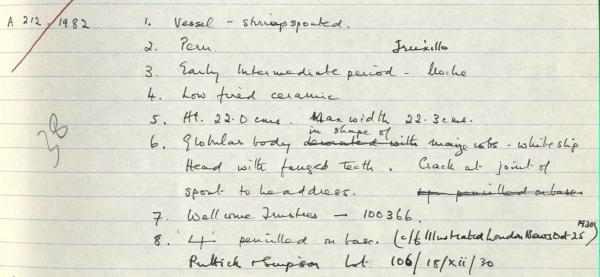 A 212.1982 1. Vessel - stirrup spouted.
2. Peru Truxillo
3. Early Intermediate period - Moche
4. Low fired ceramic
5. Ht. 22.0 cms. Max width 22.3 cms.
in shape of
6. Globular body decorated with maize cobs - white slip
Head with fanged teeth. Crack at joint of
spout to headdress. pencilled on base
7. Wellcome Trustees - 100366.
1930)
8. '4' pencilled on base. (c/f Illustrated London News Oct 25
Puttick & Simpson Lot 106/18/xii/30